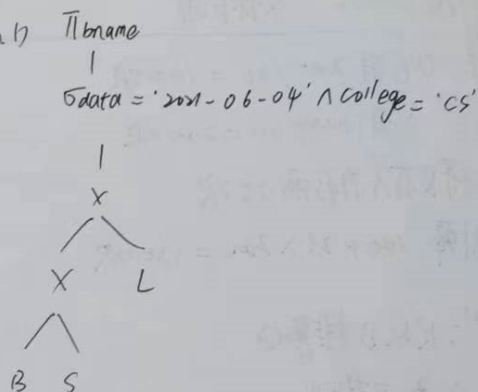 1) Πbname
σdata = '2021-06-04' ∧ college = 'CS'
X
X L
B S